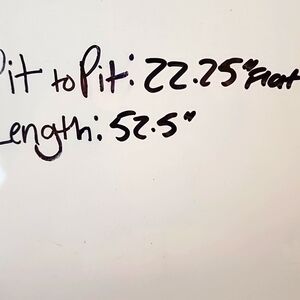 Pit to Pit: 22.25" Flat
Length: 52.5"